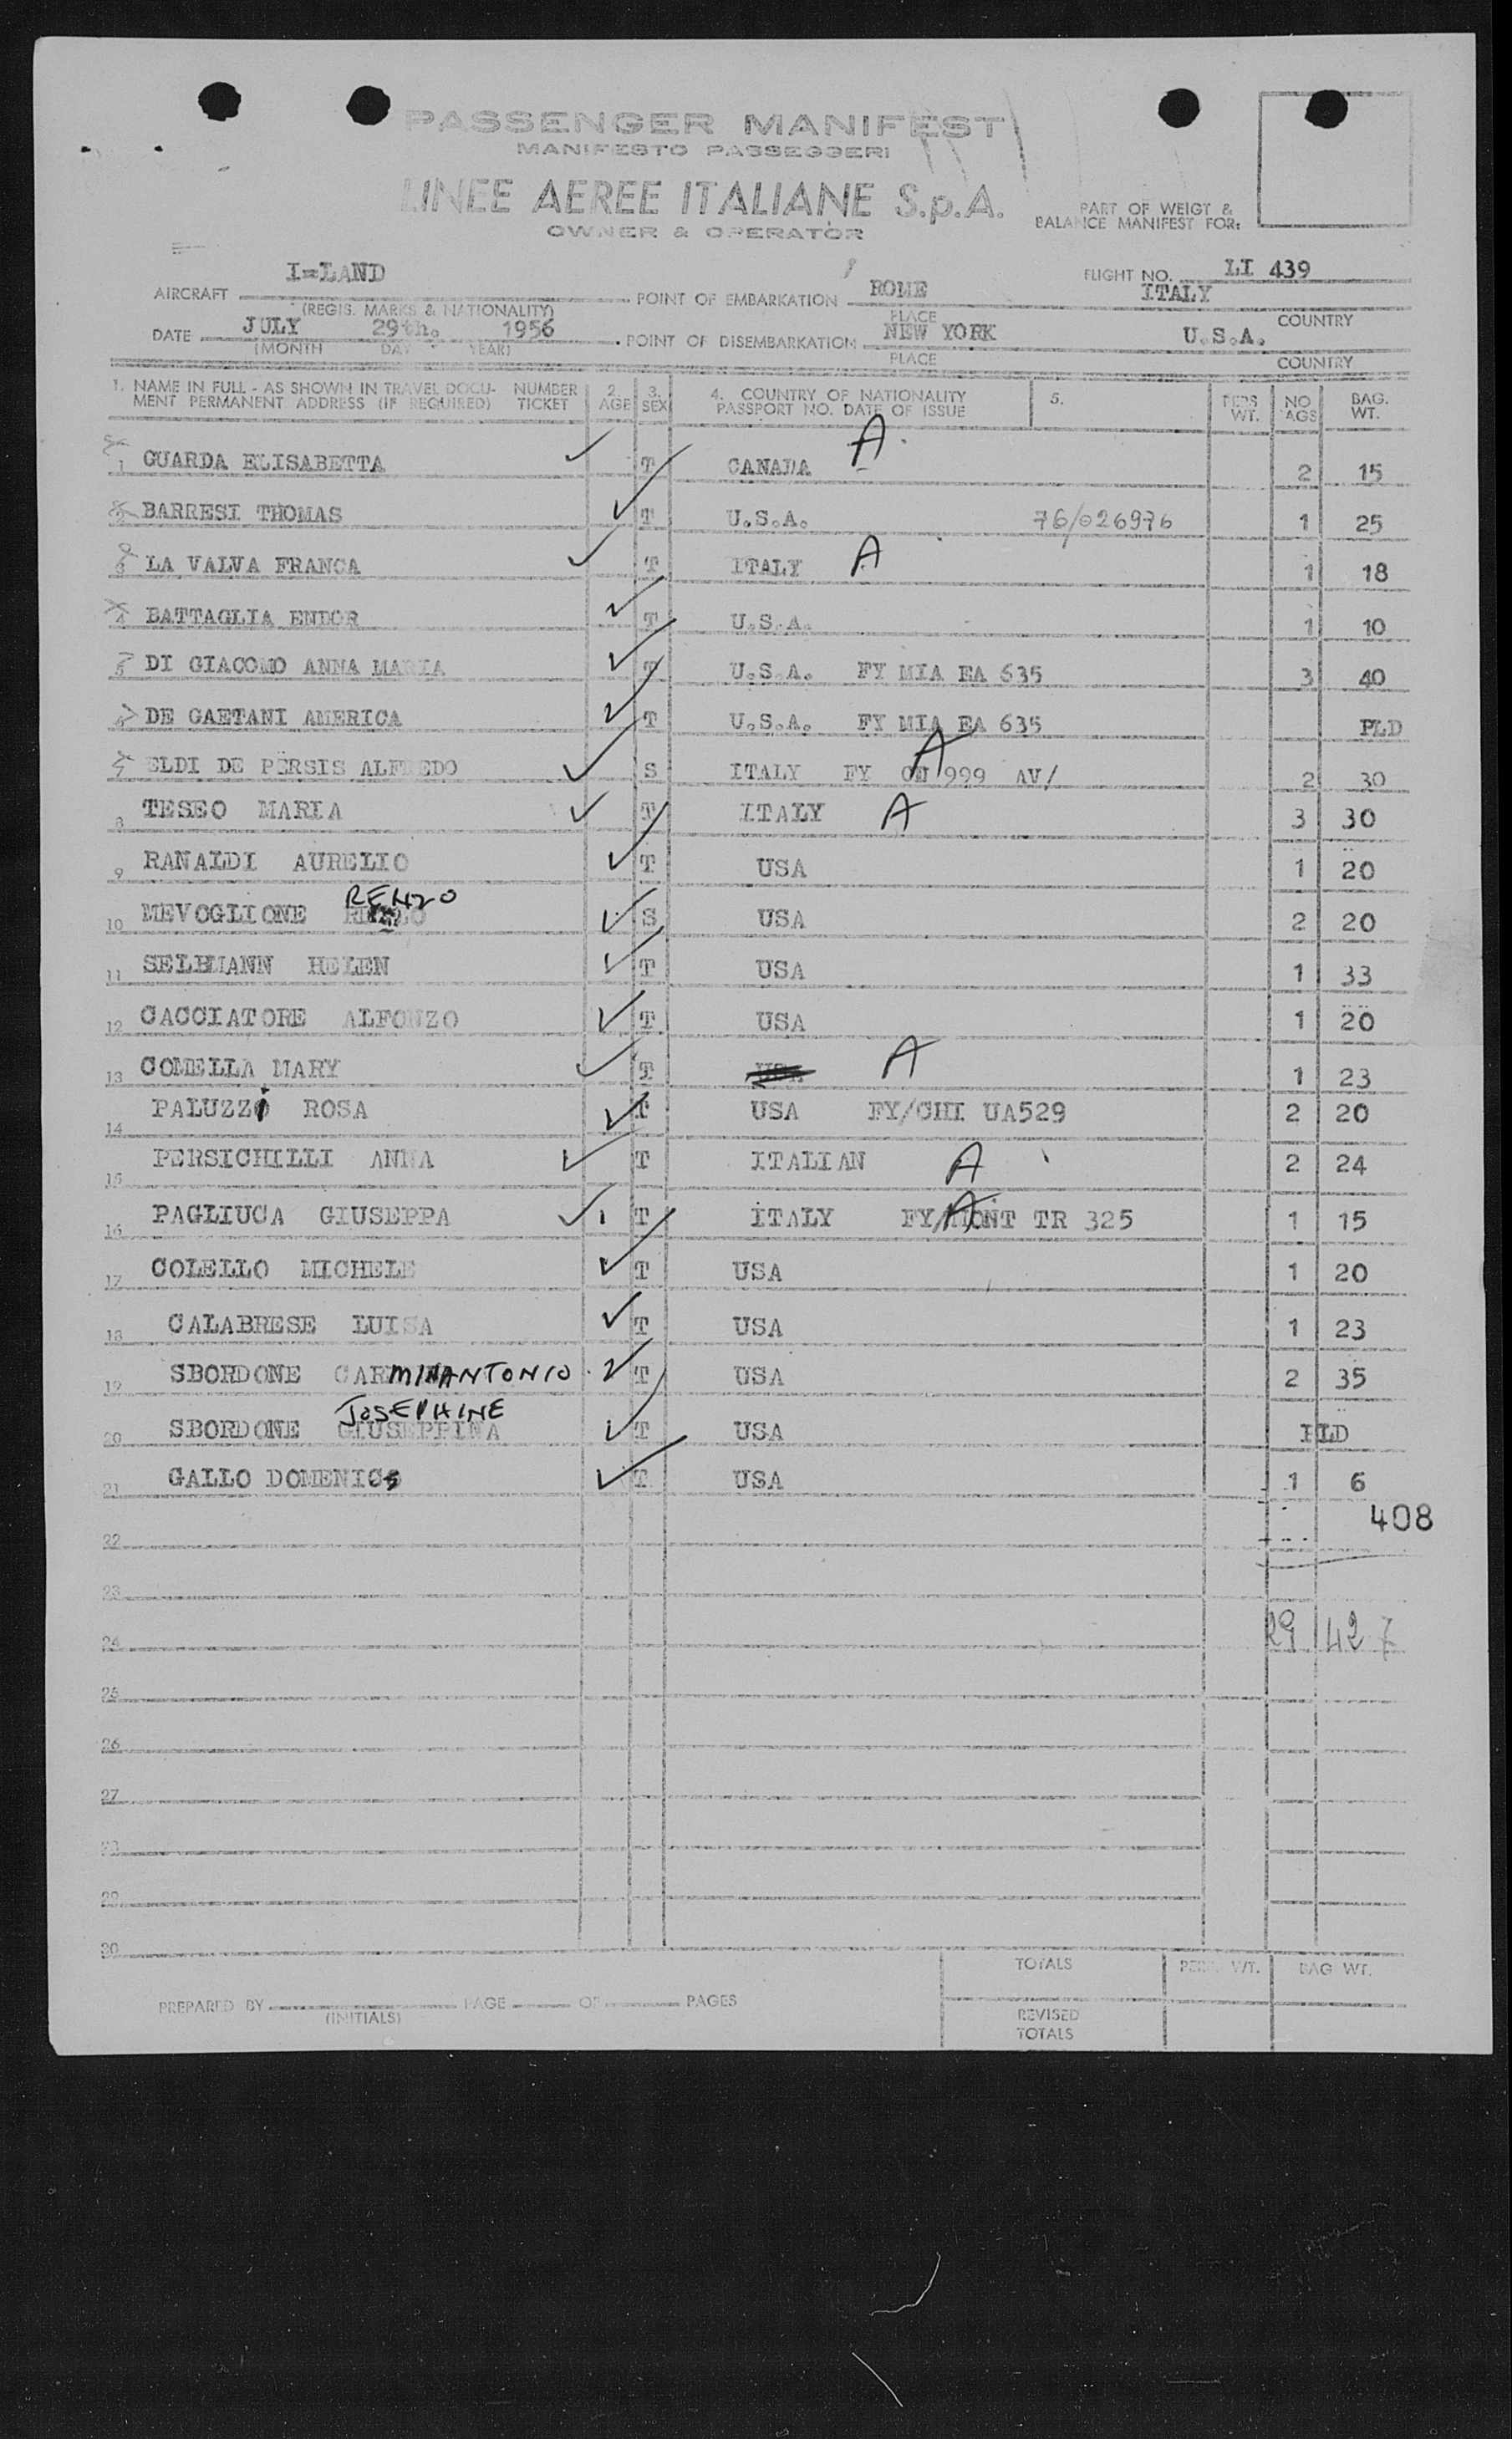 PASSENGER MANIFEST
MANIFESTO PASSEGGERI
LINEE AEREE ITALIANE S.p.A.
OWNER & OPERATOR
PART OF WEIGT &
BALANCE MANIFEST FOR:
AIRCRAFT I=LAND POINT OF EMBARKATION ROME ITALY FLIGHT NO. LI 439
(REGIS. MARKS & NATIONALITY) PLACE COUNTRY
DATE JULY 29th. 1956 POINT OF DISEMBARKATION NEW YORK U.S.A.
(MONTH DAY YEAR) PLACE COUNTRY
1. NAME IN FULL - AS SHOWN IN TRAVEL DOCU- NUMBER 2. 3. 4. COUNTRY OF NATIONALITY 5. PERS NO BAG.
MENT PERMANENT ADDRESS (IF REQUIRED) TICKET AGE SEX PASSPORT NO. DATE OF ISSUE WT. AGS WT.
1 GUARDA ELISABETTA T CANADA A 2 15
2 BARRESI THOMAS T U.S.A. 76/026976 1 25
3 LA VALVA FRANCA T ITALY A 1 18
4 BATTAGLIA ENDOR T U.S.A. 1 10
5 DI GIACOMO ANNA MARIA T U.S.A. FY MIA EA 635 3 40
6 DE GAETANI AMERICA T U.S.A. FY MIA EA 635 PLD
7 ELDI DE PERSIS ALFREDO S ITALY FY 999 AV/ A 2 30
8 TESEO MARIA T ITALY A 3 30
9 RANALDI AURELIO T USA 1 20
RENZO
10 MEVOGLIONE S USA 2 20
11 SELHMANN HELEN T USA 1 33
12 CACCIATORE ALFONZO T USA 1 20
13 COMELLA MARY T A 1 23
14 PALUZZI ROSA T USA FY/CHI UA529 2 20
15 PERSICHILLI ANNA T ITALIAN A 2 24
16 PAGLIUCA GIUSEPPA T ITALY FY/MONT TR 325 A 1 15
17 COLELLO MICHELE T USA 1 20
18 CALABRESE LUISA T USA 1 23
19 SBORDONE CARMINANTONIO T USA 2 35
JOSEPHINE
20 SBORDONE GIUSEPPINA T USA PLD
21 GALLO DOMENICO T USA 1 6
408
22
23
24 29 427
25
26
27
28
29
30
TOTALS PERS. WT. BAG WT.
PREPARED BY PAGE OF PAGES
(INITIALS)
REVISED
TOTALS